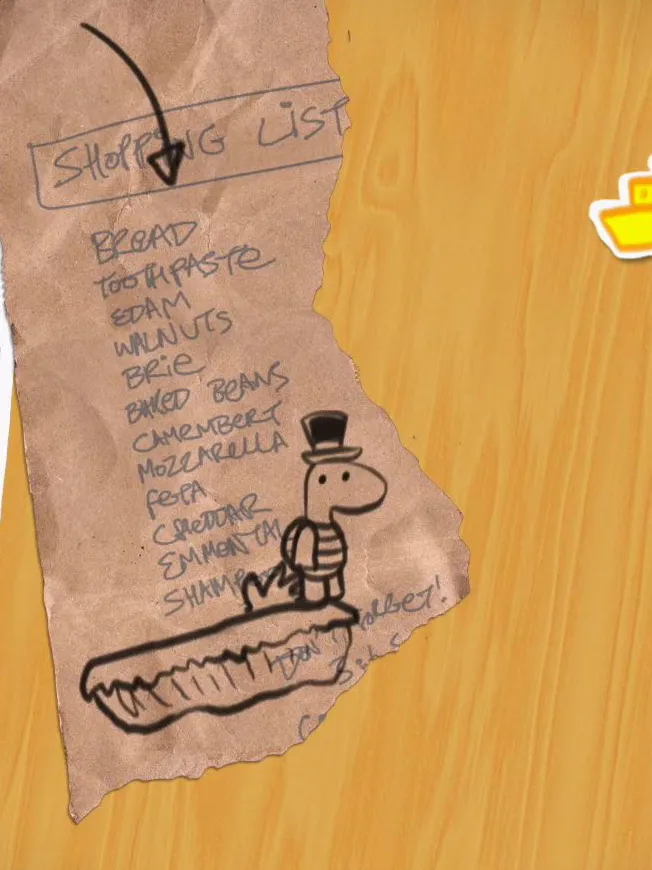 SHOPPING LIST
BREAD
TOOTHPASTE
EDAM
WALNUTS
BRIE
BAKED BEANS
CAMEMBERT
MOZZARELLA
FETA
CHEDDAR
EMMENTAL
DON'T FORGET!